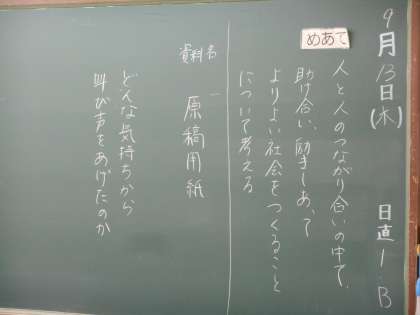 9月13日(木)
日直 1.B
めあて
人と人のつながり合いの中で、
助け合い、励まし合って
よりよい社会をつくること
について考える
資料名
原稿用紙
どんな気持ちから
叫び声をあげたのか